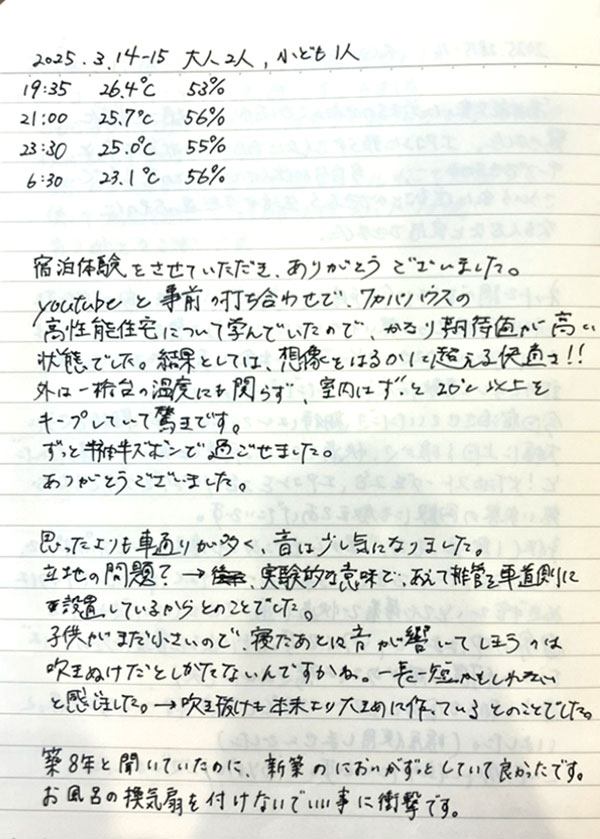 2025.3.14-15 大人2人, 小ども1人
19:35 26.4℃ 53%
21:00 25.7℃ 56%
23:30 25.0℃ 55%
6:30 23.1℃ 56%
宿泊体験をさせていただき、ありがとうございました。
youtubeと事前の打ち合わせで、ワカバハウスの
高性能住宅について学んでいたので、かなり期待値が高い
状態でした。結果としては、想像をはるかに超える快適さ!!
外は一桁台の温度にも関らず、室内はずっと20℃以上を
キープしていて驚きです。
ずっと半袖半ズボンで過ごせました。
ありがとうございました。
思ったよりも車通りが多く、音は少し気になりました。
立地の問題?→実験的な意味で、あえて排管を車道側に
設置しているからとのことでした。
子供がまだ小さいので、寝たあとは音が響いてしまうのは
吹きぬけだとしかたないんですかね。一長一短かもしれない
と感じました。→吹き抜けも本来より大きめに作っているとのことでした。
築8年と聞いていたのに、新築のにおいがずっとしていて良かったです。
お風呂の換気扇を付けないでいい事に衝撃です。